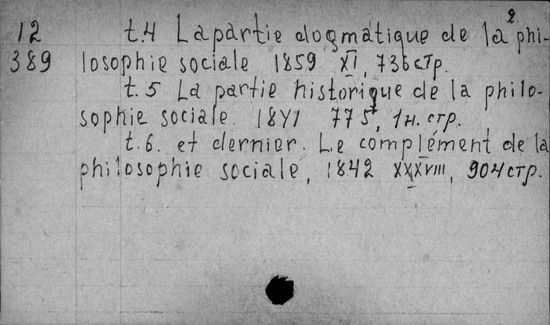 2
12 t.4 La partie dogmatique de la phi-
389 losophie sociale 1859 XI, 736 стр.
t.5 La partie historique de la philo-
sophie sociale. 1841 775, 1 н. стр.
t.6. et dernier. Le complément de la
philosophie sociale, 1842 XXXVIII, 904 стр.